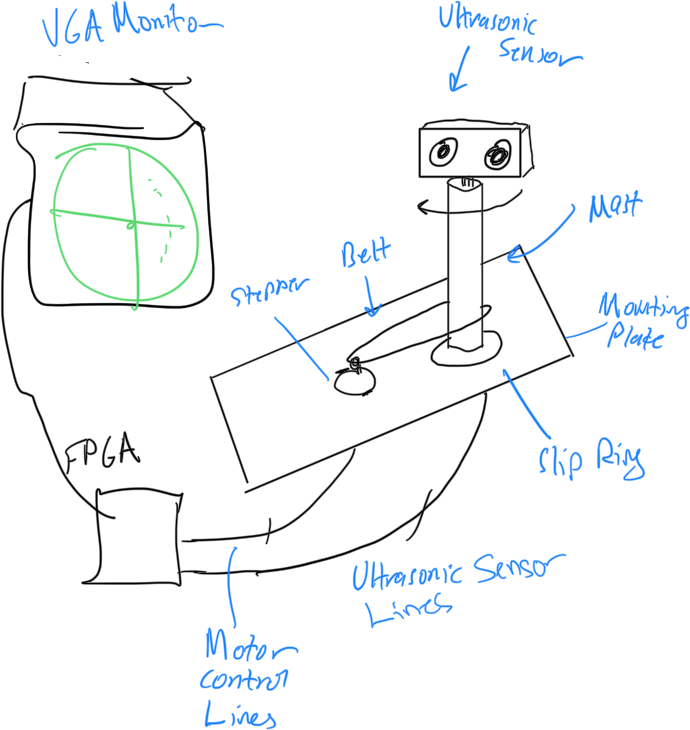 VGA Monitor
Ultrasonic
Sensor
Mast
Belt
Stepper
Mounting
Plate
FPGA
Slip Ring
Ultrasonic Sensor
Lines
Motor
control
Lines